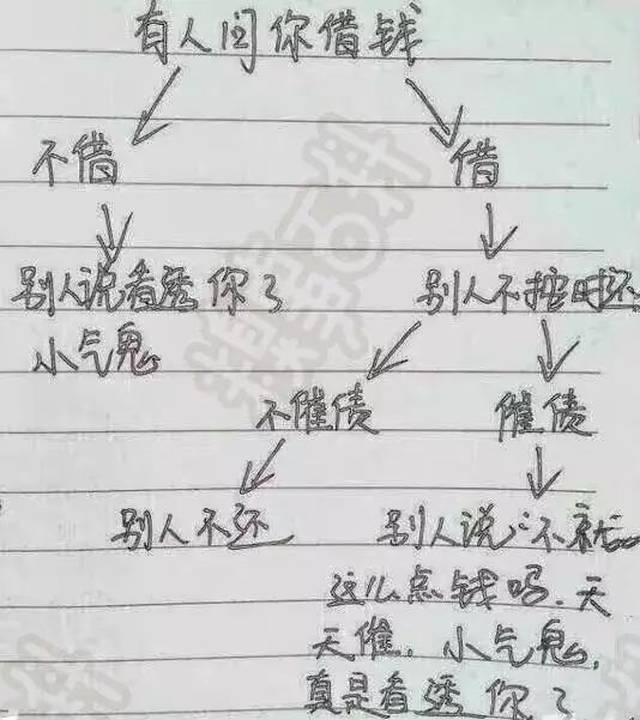 有人问你借钱
不借 借
别人说看透你了 别人不按时还
小气鬼
不催债 催债
别人不还 别人说:不就
这么点钱吗.天
天催.小气鬼,
真是看透你了